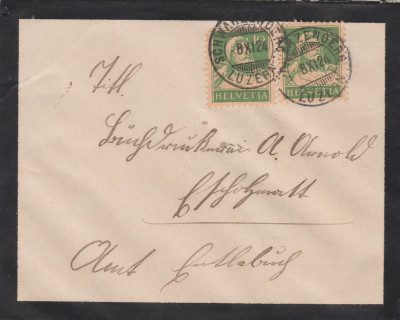 SCHWARZENBERG SCHWARZENBERG
8 XI 24 8 XI 24
(LUZERN) (LUZERN)
HELVETIA HELVETIA
Titl.
Buchdruckerei A. Arnold
Escholzmatt
Amt Entlebuch